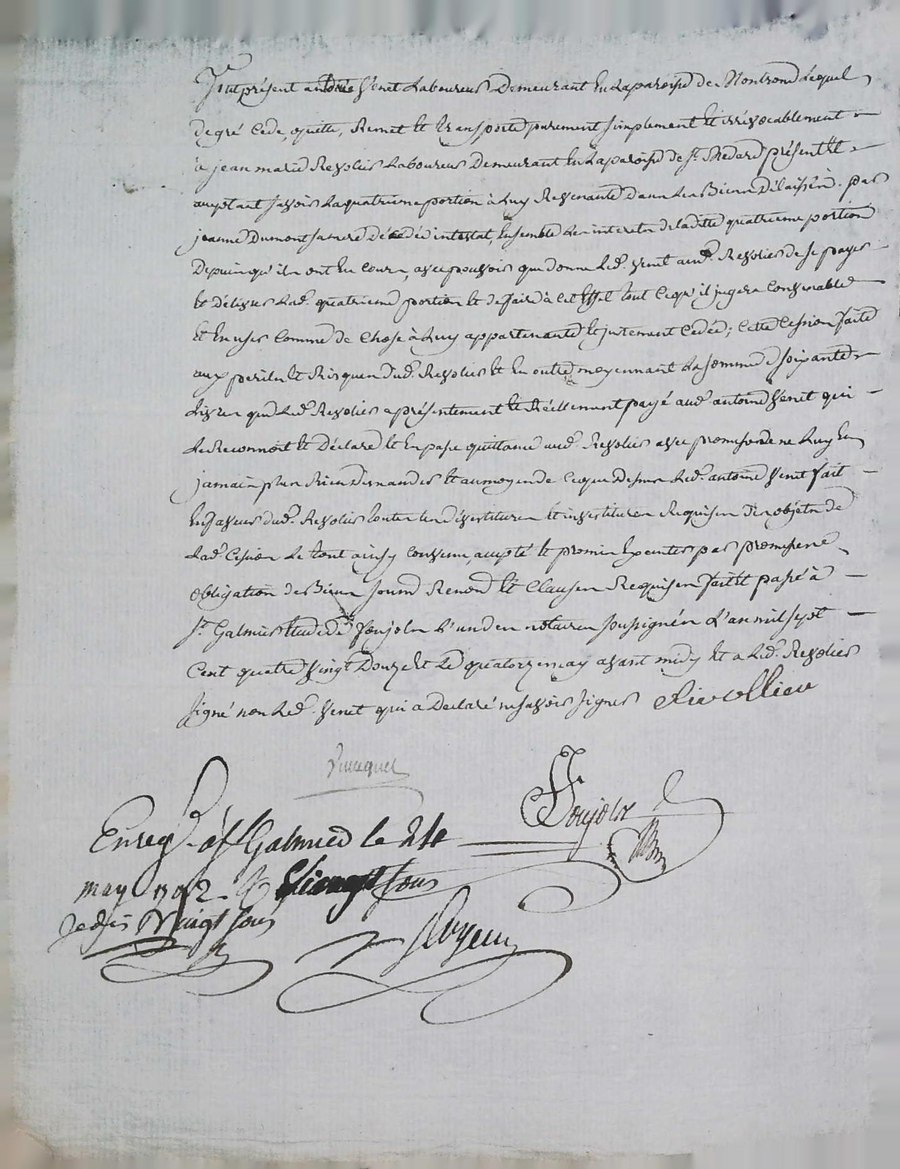 fut présent antoine Venet Laboureur Demeurant En La paroisse de Montrond Lequel
de gré Cede, quitte, Remet Et transporte purement simplement Et irrévocablement
à jean marie Revolier Laboureur Demeurant En La paroisse de St. Medard présent Et
acceptant savoir La quatrieme portion à Luy Revenante Dans Les Biens Délaissés par
jeanne Dumont sa mere Décedée intestat, Ensemble Les interets de laditte quatrieme portion
Depuis qu'ils ont Eu Cours, avec pouvoir que donne Led. Venet aud. Revolier de se payer
Et Délivrer Lad. quatrieme portion Et de faire à Cet Effet tout Ce qu'il jugera Convenable
Et En user Comme de Chose à Luy appartenante Et justement Cédée; Cette Cession faite
aux perils Et Risques dud. Revolier Et En outre moyennant La somme de soixante
Livres que Led. Revolier a présentement Et Réellement payé aud. antoine Venet qui
Le Reconnoit Et Déclare Et En passe quittance aud. Revolier avec promesse de ne Luy En
jamais plus Rien Demander Et au moyen de Ce que Dessus Led. antoine Venet fait
En faveur dud. Revolier toutes Les dévestitures Et investitures Requises Des objets de
Lad. Cession Le tout ainsy Convenu, accepté Et promis Executer par promesse
obligation de Biens soumd Renond Et Clauses Requises fait Et passé à
St. Galmier Etude de Me Poujolz L'un des notaires soussignés L'an mil sept
Cent quatre Vingt Douze Et Le quatorze may avant midy Et a Led. Revolier
signé non Led. Venet qui a Declaré ne savoir signer Rivollier
Poujolz
Enreg. à St Galmier le 24
may 1792
vingt sous